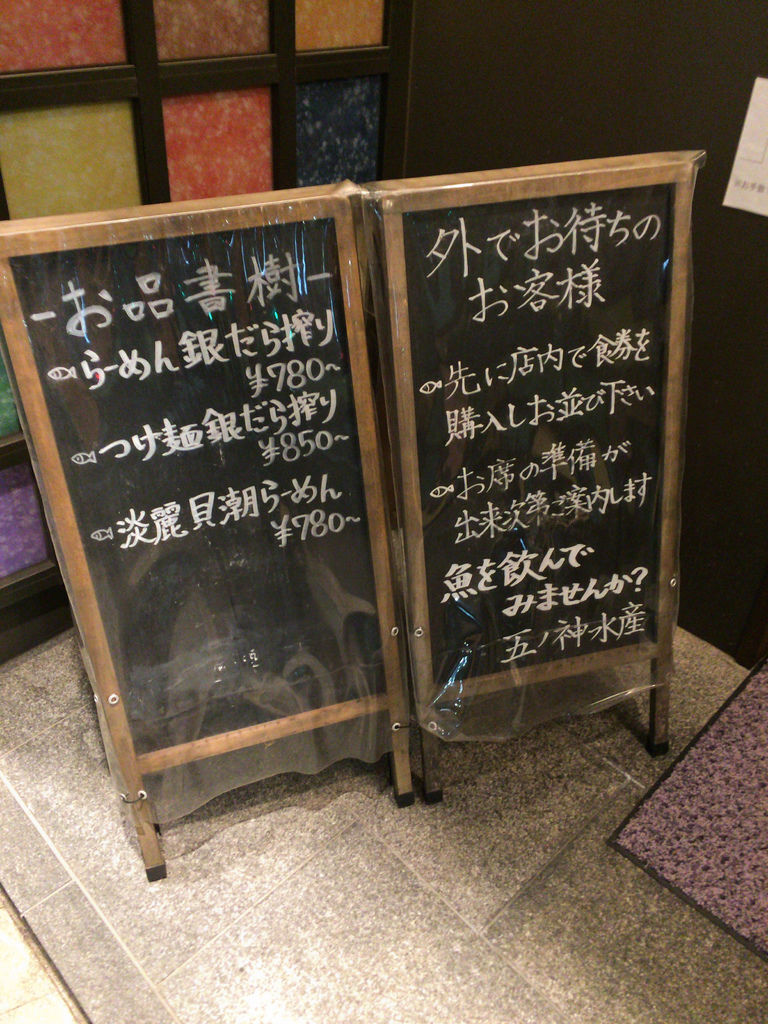 -お品書樹-
らーめん銀だら搾り
¥780~
つけ麺銀だら搾り
¥850~
淡麗貝潮らーめん
¥780~
外でお待ちの
お客様
先に店内で食券を
購入しお並び下さい
お席の準備が
出来次第ご案内します
魚を飲んで
みませんか?
五ノ神水産
※お手数